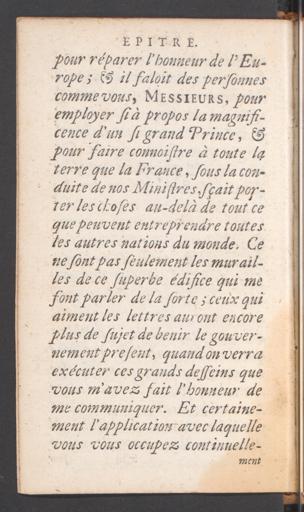 EPITRE.
pour réparer l'honneur de l'Eu-
rope; & il faloit des personnes
comme vous, MESSIEURS, pour
employer si à propos la magnifi-
cence d'un si grand Prince, &
pour faire connoistre à toute la
terre que la France, sous la con-
duite de nos Ministres, sçait por-
ter les choses au-delà de tout ce
que peuvent entreprendre toutes
les autres nations du monde. Ce
ne sont pas seulement les murail-
les de ce superbe édifice qui me
font parler de la sorte; ceux qui
aiment les lettres auront encore
plus de sujet de benir le gouver-
nement present, quand on verra
exécuter ces grands desseins que
vous m'avez fait l'honneur de
me communiquer. Et certaine-
ment l'application avec laquelle
vous vous occupez continuelle-
ment